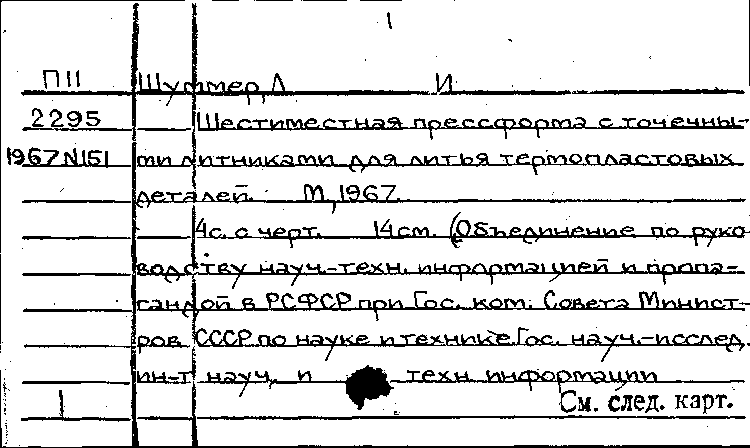 1
П11 Шуммер, Л И
2295 Шестиместная прессформа с точечны-
1967 N151 ми литниками для литья термопластовых
деталей. М, 1967.
4с. с черт. 14см. (Объединение по руко
водству науч.-техн. информацией и пропа-
гандой в РСФСР при Гос. ком. Совета Минист-
ров СССР по науке и технике. Гос. науч.-исслед.
ин-т науч. и техн информации
1 См. след. карт.